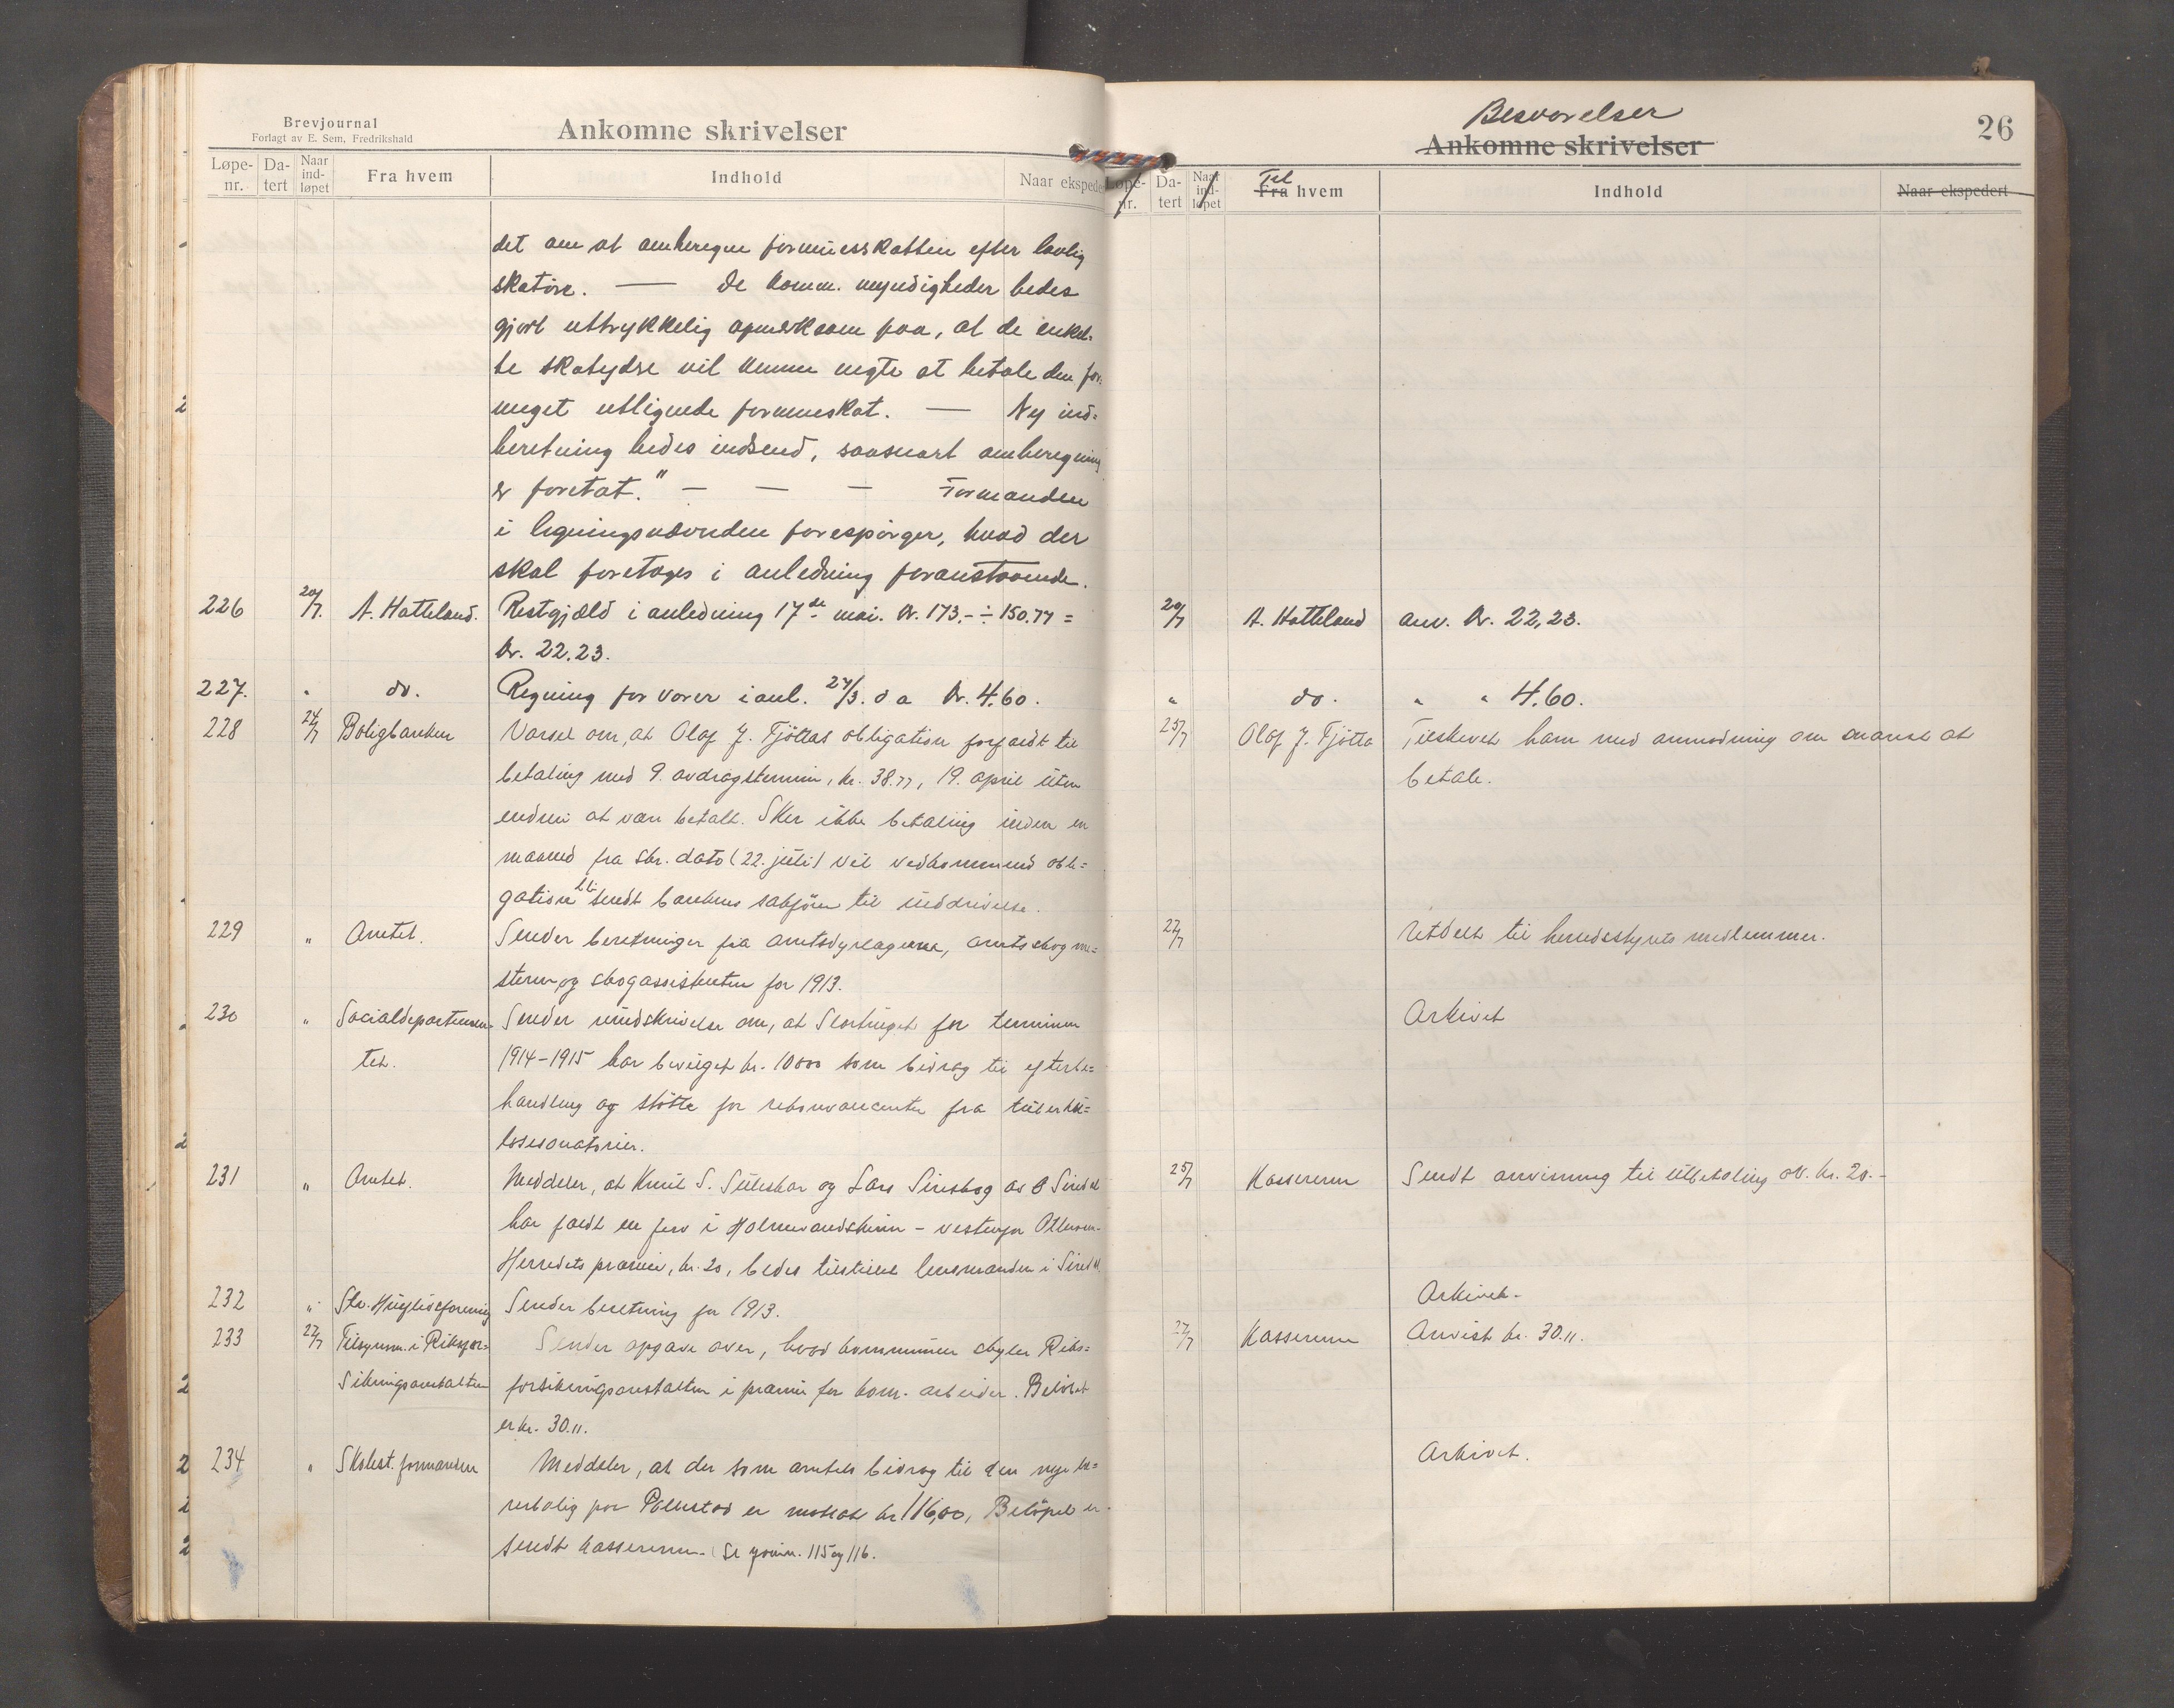 Brevjournal
Forlagt av E. Sem, Fredrikshald
Ankomne skrivelser
Løpe-nr. Da-tert Naar ind-løpet Fra hvem Indhold Naar ekspede
det om at omberegne formuesskatten efter lovlig
skatøre. — De komm. myndigheder bedes
gjort uttrykkelig opmerksom paa, at de enkel-
te skatydre vil kunne negte at betale den for
meget utlignede formueskat. — Ny ind=
beretning bedes indsend, saasnart omberegning
er foretat." — — — Formanden
i ligningsnævnden forespörger, hvad der
skal foretages i anledning foranstaaende.
226 20/7. A. Hatteland. Restgjæld i anledning 17de mai. Kr. 173.- ÷ 150.77 =
Kr. 22.23.
227. " do. Regning for varer i anl. 27/3. d a Kr. 4.60.
228 24/7 Boligbanken Varsel om, at Olaf J. Tjöttas obligation forfaldt til
betaling med 9. avdragstermin, kr. 38.77, 19. april uten
endnu at være betalt. Sker ikke betaling inden en
maaned fra skr. dato (22. juli) vil vedkommend obli=
gation bli sendt bankens sakförer til inddrivelse.
229 " Amtet. Sender beretninger fra amtsdyrlægerne, amtsskogme=
steren og skogassistenten for 1913.
230 " Socialdepartemen- Sender rundskrivelse om, at Stortinget for terminen
tet. 1914-1915 har bevilget kr. 10000 som bidrag til efterbe=
handling og stötte for rekonvalecenter fra tuberku=
losesanatorier.
231 " Amtet. Meddeler, at Knut S. Suleskar og Lars Sinskog av Ö Sirdal
har fældt en jerv i Holmevandsheien - vestenfor Otteraaen.
Herredets præmie, kr. 20, bedes tilstillet lensmanden i Sirdal.
232 " Stv. Husflidsforening Sender beretning for 1913.
233 27/7 Tilsynsm. i Riksfor= Sender opgave over, hvad kommunen skylder Riks=
sikringsanstalten forsikringsanstalten i præmie for kom. arbeider. Belöbet
er kr. 30.11.
234 " Skolest. formanden Meddeler, at der som amtets bidrag til den nye læ=
rerbolig paa Polestad er motat kr 116,00, Belöpet er
sendt kassereren. (Se journ. 115 og 116.
26
Besvarelser
Ankomne skrivelser
Løpe-nr. Da-tert Naar ind-løpet Til Fra hvem Indhold Naar ekspedert
20/7 A. Hatteland anv. Kr. 22,23.
" do. " " 4.60.
25/7 Olaf J. Tjötta Tilskrevet ham med anmodning om snarest at
betale.
27/7 Utdelt til herredsstyrets medlemmer.
Arkivet
25/7 Kassereren Sendt anvisning til utbetaling av kr. 20.-
Arkivet.
27/7 Kassereren Anvist kr. 30.11.
Arkivet.